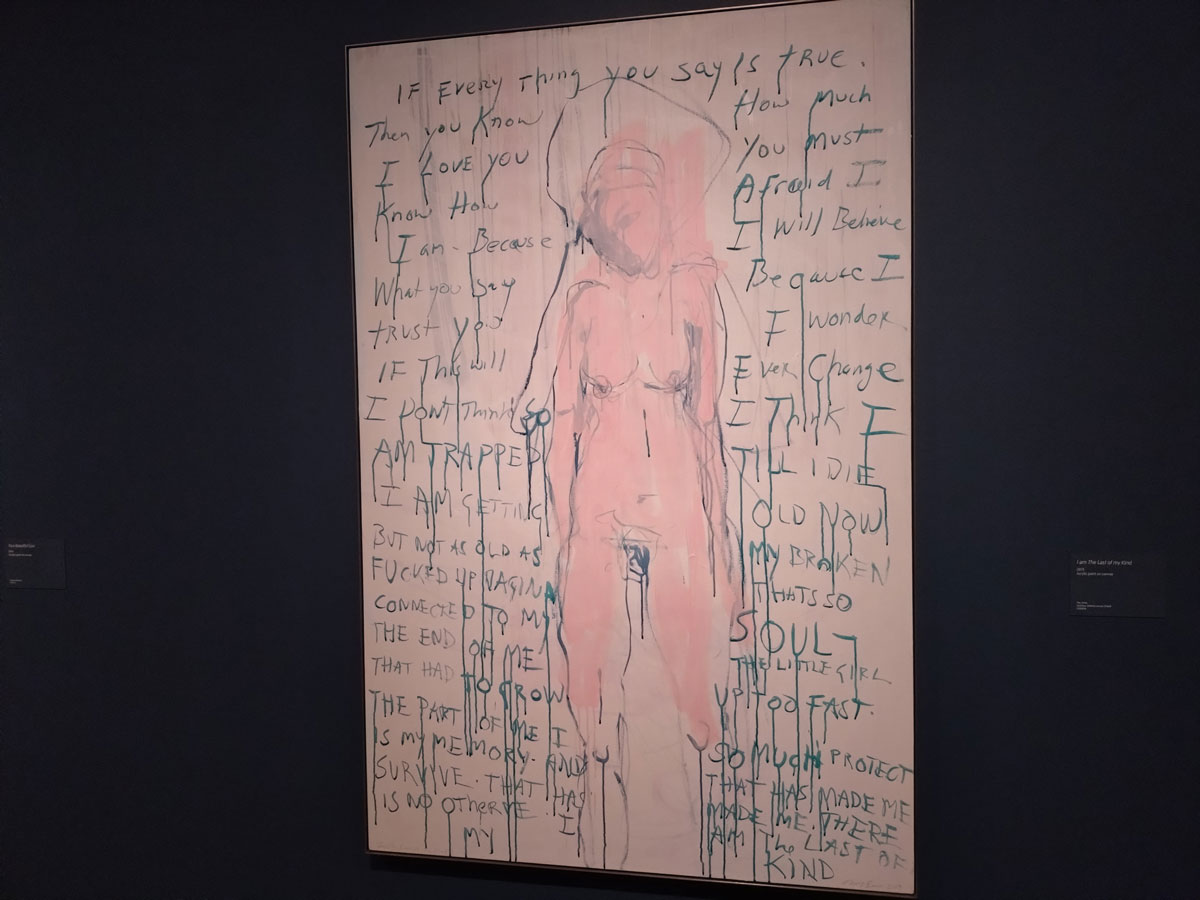 IF Every Thing you say Is true.
Then you Know How Much
I Love you You must
Know How Afraid I
I am - Because I Will Believe
What you say Because I
trust you I wonder
IF This will Ever Change
I DONT Think so I Think I
AM TRAPPED TILL I DIE
I AM GETTING OLD NOW
BUT NOT AS OLD AS MY BROKEN
FUCKED UP VAGINA THATS SO
CONNECTED TO MY SOUL -
THE END OF ME THE LITTLE GIRL
THAT HAD TO GROW UP TOO FAST.
THE PART OF ME I SO MUCH PROTECT
IS MY MEMORY. AND THAT HAS MADE ME
SURVIVE. THAT HAS MADE ME. THERE
IS NO I AM The LAST OF
MY KIND
I am The Last of my Kind
Acrylic paint on canvas